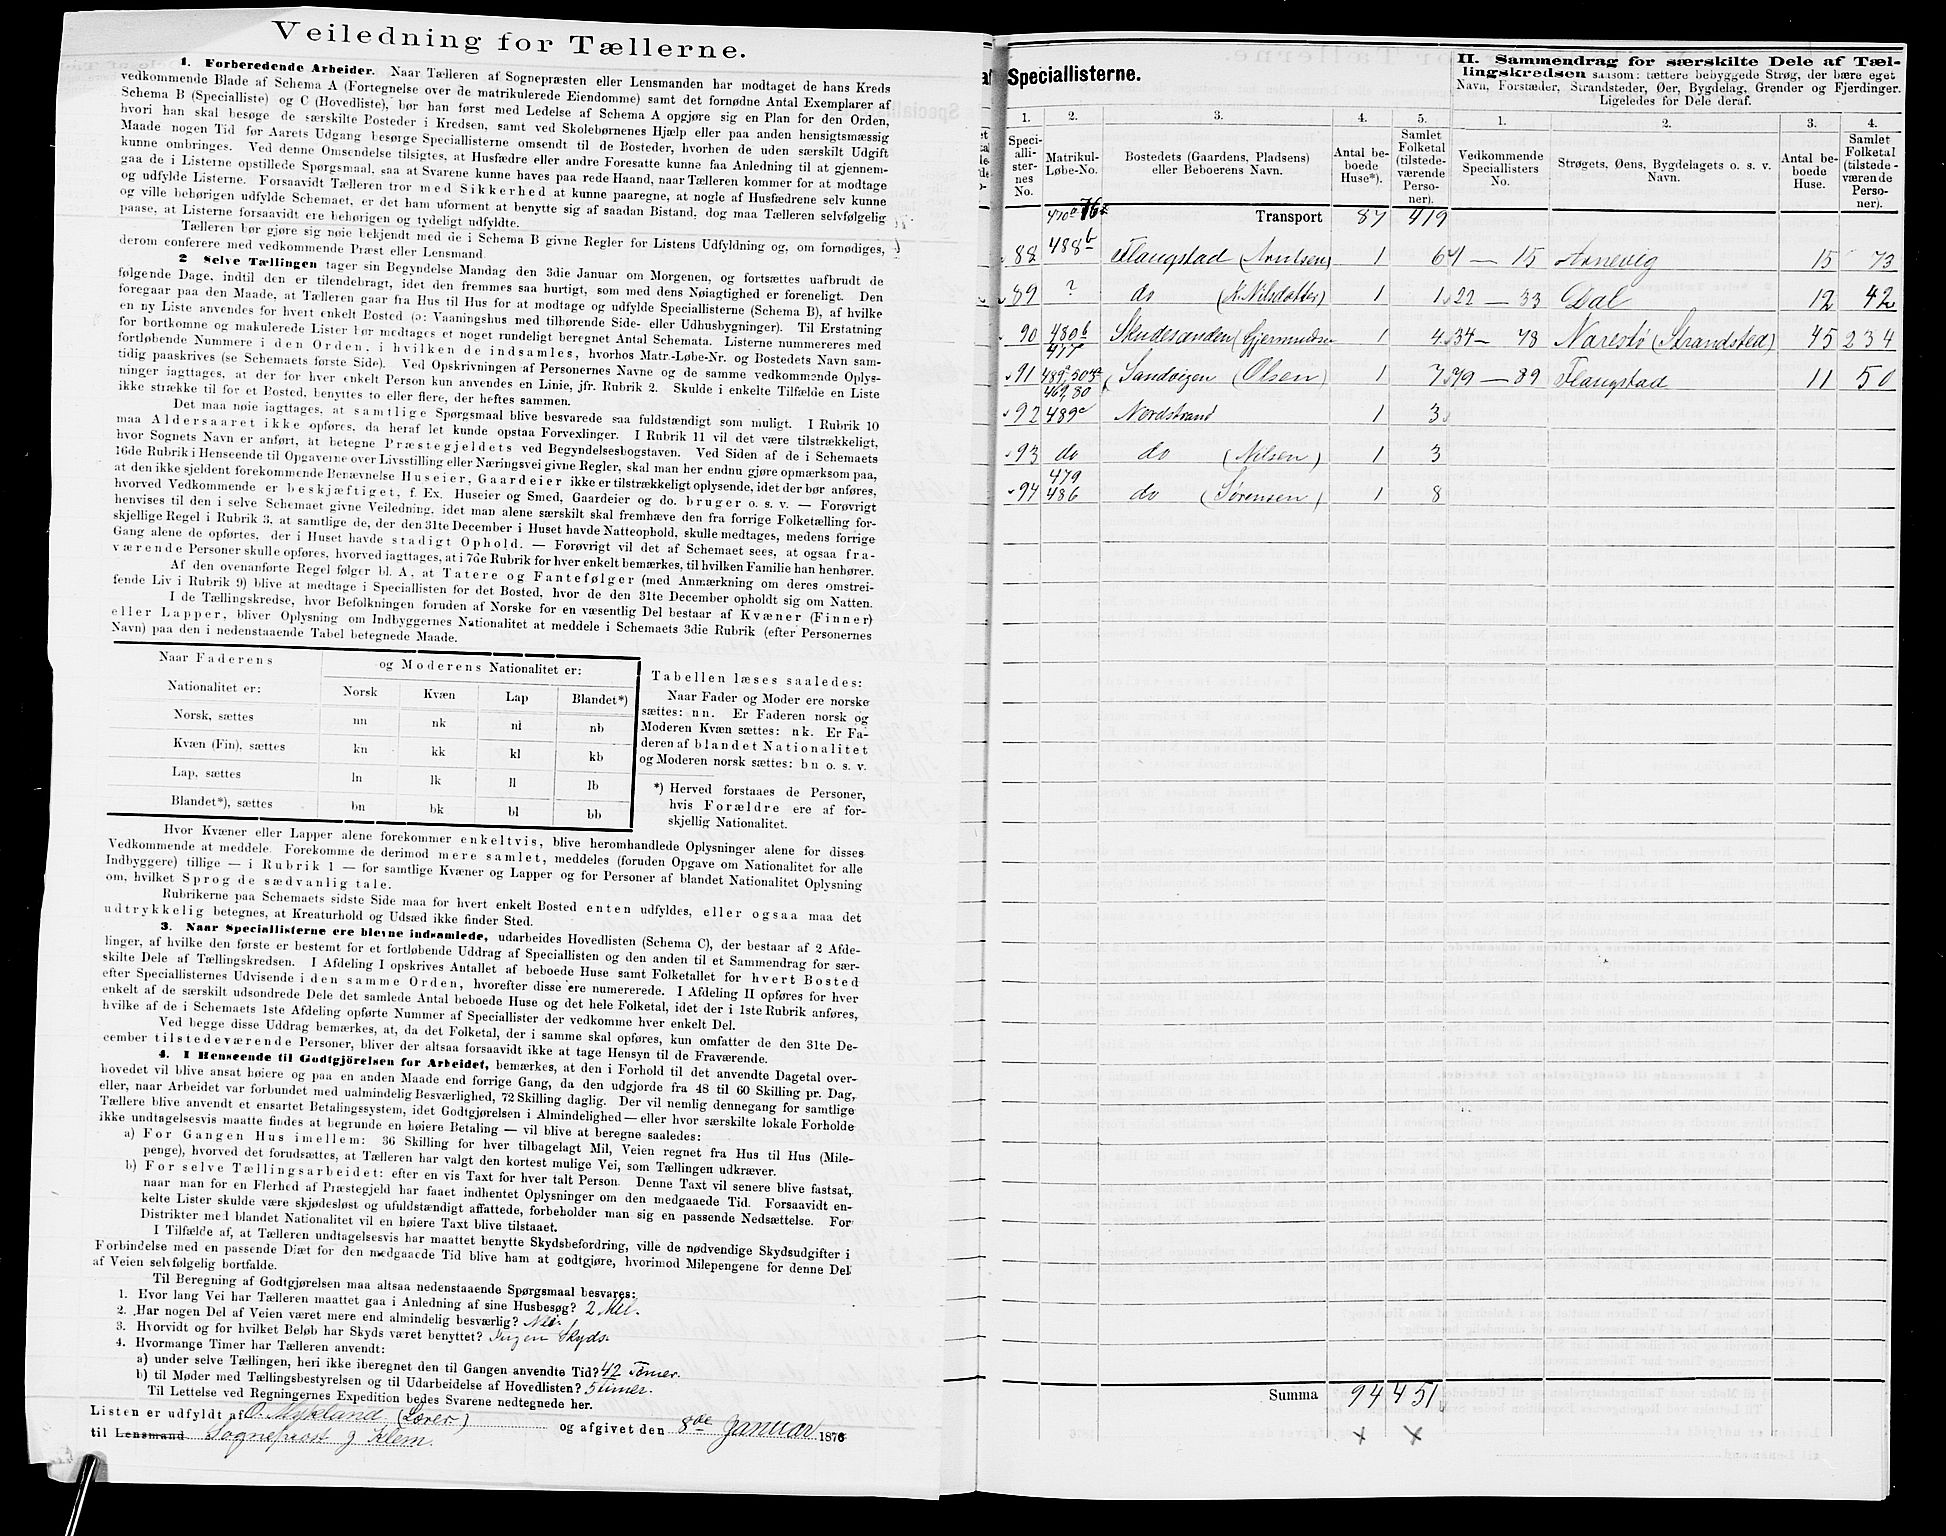 Veiledning for Tællerne.
1. Forberedende Arbeider. Naar Tælleren af Sognepræsten eller Lensmanden har modtaget de hans Kreds
vedkommende Blade af Schema A (Fortegnelse over de matrikulerede Eiendomme) samt det fornødne Antal Exemplarer af
Schema B (Specialliste) og C (Hovedliste), bør han først med Ledelse af Schema A opgjøre sig en Plan for den Orden,
hvori han skal besøge de særskilte Bosteder i Kredsen, samt ved Skolebørnenes Hjælp eller paa anden hensigtsmæssig
Maade nogen Tid før Aarets Udgang besørge Speciallisterne omsendt til de Bosteder, hvorhen de uden særskilt Udgift
kunne ombringes. Ved denne Omsendelse tilsigtes, at Husfædre eller andre Foresatte kunne faa Anledning til at gjennem-
gaa de i Listerne opstillede Spørgsmaal, saa at Svarene kunne haves paa rede Haand, naar Tælleren kommer for at modtage
og udfylde Listerne. Forsaavidt Tælleren tror med Sikkerhed at kunne paaregne, at nogle af Husfædrene selv kunne
og ville behørigen udfylde Schemaet, er det ham uforment at benytte sig af saadan Bistand, dog maa Tælleren selvfølgelig
paase, at Listerne forsaavidt ere behørigen og tydeligt udfyldte.
Tælleren bør gjøre sig nøie bekjendt med de i Schema B givne Regler for Listens Udfyldning og, om fornødiges,
derom conferere med vedkommende Præst eller Lensmand.
2 Selve Tællingen tager sin Begyndelse Mandag den 3die Januar om Morgenen, og fortsættes uafbrudt de
følgende Dage, indtil den er tilendebragt, idet den fremmes saa hurtigt, som med dens Nøiagtighed er foreneligt. Den
foregaar paa den Maade, at Tælleren gaar fra Hus til Hus for at modtage og udfylde Speciallisterne (Schema B), af hvilke
en ny Liste anvendes for hvert enkelt Bosted (ɔ: Vaaningshus med tilhørende Side- eller Udhusbygninger). Til Erstatning
for bortkomne og makulerede Lister bør medtages et noget rundeligt beregnet Antal Schemata. Listerne nummereres med
fortløbende Nummere i den Orden, i hvilken de indsamles, hvorhos Matr.-Løbe-Nr. og Bostedets Navn sam-
tidig paaskrives (se Schemaets første Side). Ved Opskrivningen af Personernes Navne og de samme vedkommende Oplys-
ninger iagttages, at der for hver enkelt Person kun anvendes en Linie, jfr. Rubrik 2. Skulde i enkelte Tilfælde en Liste
ikke strække til for et Bosted, benyttes to eller flere, der heftes sammen.
Det maa nøie iagttages, at samtlige Spørgsmaal blive besvarede saa fuldstændigt som muligt. I Rubrik 10
maa Aldersaaret ikke opføres, da heraf let kunde opstaa Forvexlinger. I Rubrik 11 vil det være tilstrækkeligt,
hvor Sognets Navn er anført, at betegne Præstegjeldets ved Begyndelsesbogstaven. Ved Siden af de i Schemaets
16de Rubrik i Henseende til Opgaverne over Livsstilling eller Næringsvei givne Regler, skal man her endnu gjøre opmærksom paa,
at den ikke sjeldent forekommende Benævnelse Huseier, Gaardeier ikke er tilstrækkeligt oplysende, idet der bør anføres,
hvorved Vedkommende er beskjæftiget, f. Ex. Huseier og Smed, Gaardeier og do. bruger o. s. v. — Forøvrigt
henvises til den i selve Schemaet givne Veiledning, idet man alene særskilt skal fremhæve den fra forrige Folketælling for-
skjellige Regel i Rubrik 3, at samtlige de, der den 31te December i Huset havde Natteophold, skulle medtages, medens forrige
Gang alene de opførtes, der i Huset havde stadigt Ophold. — Forøvrigt vil det af Schemaet sees, at ogsaa fra-
værende Personer skulle opføres, hvorved iagttages, at i 7de Rubrik for hver enkelt bemærkes, til hvilken Familie han henhører.
Af den ovenanførte Regel følger bl. A. at Tatere og Fantefølger (med Anmærkning om deres omstrei-
fende Liv i Rubrik 9) blive at medtage i Speciallisten for det Bosted, hvor de den 31te December opholdt sig om Natten.
I de Tællingskredse, hvor Befolkningen foruden af Norske for en væsentlig Del bestaar af Kvæner (Finner)
eller Lapper, bliver Oplysning om Indbyggernes Nationalitet at meddele i Schemaets 3die Rubrik (efter Personernes
Navn) paa den i nedenstaaende Tabel betegnede Maade.
Naar Faderens og Moderens Nationalitet er:
Nationalitet er: Norsk Kvæn Lap Blandet*)
Norsk, sættes nn nk nl nb
Kvæn (Fin), sættes kn kk kl kb
Lap, sættes ln lk ll lb
Blandet*), sættes bn bk bl bb
Tabellen læses saaledes:
Naar Fader og Moder ere norske
sættes: nn. Er Faderen norsk og
Moderen Kvæn sættes: nk. Er Fa-
deren af blandet Nationalitet
og Moderen norsk sættes: bn o. s. v.
*) Herved forstaaes de Personer,
hvis Forældre ere af for-
skjellig Nationalitet.
Hvor Kvæner eller Lapper alene forekommer enkeltvis, blive heromhandlede Oplysninger alene for disses
Vedkommende at meddele. Forekomme de derimod mere samlet, meddeles (foruden Opgave om Nationalitet for alle
Indbyggere) tillige — i Rubrik 1 — for samtlige Kvæner og Lapper og for Personer af blandet Nationalitet Oplysning
om, hvilket Sprog de sædvanlig tale.
Rubrikerne paa Schemaets sidste Side maa for hvert enkelt Bosted enten udfyldes, eller ogsaa maa det
udtrykkelig betegnes, at Kreaturhold og Udsæd ikke finder Sted.
3. Naar Speciallisterne ere blevne indsamlede, udarbeides Hovedlisten (Schema C), der bestaar af 2 Afde-
linger, af hvilke den første er bestemt for et fortløbende Uddrag af Speciallisten og den anden til et Sammendrag for sær-
skilte Dele af Tællingskredsen. I Afdeling I opskrives Antallet af beboede Huse samt Folketallet for hvert Bosted
efter Speciallisternes Udvisende i den samme Orden, hvorefter disse ere numererede. I Afdeling II opføres for hver
enkelt af de særskilt udsondrede Dele det samlede Antal beboede Huse og det hele Folketal, idet der i 1ste Rubrik anføres,
hvilke af de i Schemaets 1ste Afdeling opførte Nummer af Speciallister der vedkomme hver enkelt Del.
Ved begge disse Uddrag bemærkes, at, da det Folketal, der i samme skal opføres, kun omfatter de den 31te De-
cember tilstedeværende Personer, bliver der altsaa forsaavidt ikke at tage Hensyn til de Fraværende.
4. I Henseende til Godtgjörelsen for Arbeidet, bemærkes, at den i Forhold til det anvendte Dagetal over-
hovedet vil blive ansat høiere og paa en anden Maade end forrige Gang, da den udgjorde fra 48 til 60 Skilling pr. Dag,
eller, naar Arbeidet var forbundet med ualmindelig Besværlighed, 72 Skilling daglig. Der vil nemlig dennegang for samtlige
Tællere blive anvendt et ensartet Betalingssystem, idet Godtgjørelsen i Almindelighed — eller hvor særskilte lokale Forholde
ikke undtagelsesvis maatte findes at begrunde en høiere Betaling — vil blive at beregne saaledes:
a) For Gangen Hus imellem: 36 Skilling for hver tilbagelagt Mil, Veien regnet fra Hus til Hus (Mile-
penge), hvorved det forudsættes, at Tælleren har valgt den kortest mulige Vei, som Tællingen udkræver.
b) For selve Tællingsarbeidet: efter en vis Taxt for hver talt Person. Denne Taxt vil senere blive fastsat,
naar man for en Flerhed af Præstegjeld har faaet indhentet Oplysninger om den medgaaede Tid. Forsaavidt en-
kelte Lister skulde være skjødesløst og ufuldstændigt affattede, forbeholder man sig en passende Nedsættelse. For
Distrikter med blandet Nationalitet vil en høiere Taxt blive tilstaaet.
I Tilfælde af, at Tælleren undtagelsesvis har maattet benytte Skydsbefordring, ville de nødvendige Skydsudgifter i
Forbindelse med en passende Diæt for den medgaaede Tid blive ham at godtgjøre, hvorimod Milepengene for denne Del
af Veien selvfølgelig bortfalde.
Til Beregning af Godtgjørelsen maa altsaa nedenstaaende Spørgsmaal besvares:
1. Hvor lang Vei har Tælleren maattet gaa i Anledning af sine Husbesøg? 2 Mil.
2. Har nogen Del af Veien været mere end almindelig besværlig? Nei.
3. Hvorvidt og for hvilket Beløb har Skyds været benyttet? Ingen Skyds.
4. Hvormange Timer har Tælleren anvendt:
a) under selve Tællingen, heri ikke iberegnet den til Gangen anvendte Tid? 42 Timer.
b) til Møder med Tællingsbestyrelsen og til Udarbeidelse af Hovedlisten? 5 Timer.
Til Lettelse ved Regningernes Expedition bedes Svarene nedtegnede her.
Listen er udfyldt af O. Mykland (Lærer) og afgivet den 8de Januar 1876
til Lensmand Sogneprost g Klem.
Speciallisterne.
II. Sammendrag for særskilte Dele af Tæl-
lingskredsen saasom: tættere bebyggede Strøg, der bære eget
Navn, Forstæder, Strandsteder, Øer, Bygdelag, Grender og Fjerdinger.
Ligeledes for Dele deraf.
1. 2. 3. 4. 5. 1. 2. 3. 4.
Speci-
alli-
ster-
nes
No.
Matrikul-
Løbe-No.
Bostedets (Gaardens, Pladsens)
eller Beboerens Navn.
Antal be-
boede
Huse*).
Samlet
Folketal
(tilstede-
værende
Perso-
ner).
Vedkommende
Speciallisters
No.
Strøgets, Øens, Bygdelagets o. s. v.
Navn.
Antal be-
boede
Huse.
Samlet
Folketal
(tilstede-
værende
Perso-
ner).
Transport 87 419
88 488b Flangstad (Arnlsen) 1 6 1 — 15 Arnevig 15 73
89 ? do (K. Nilsdatter) 1 1 22 — 33 Dal 12 42
90 480b Skudesanden (Gjermundsen 1 4 34 — 78 Narestø (Strandsted) 45 234
91 Sandvigen (Olsen) 1 7 79 — 89 Flangstad 11 50
92 489c Nordstrand 1 3
93 do do (Nilsen) 1 3
479
94 486 do (Sørensen) 1 8
Summa 94 451
× ×